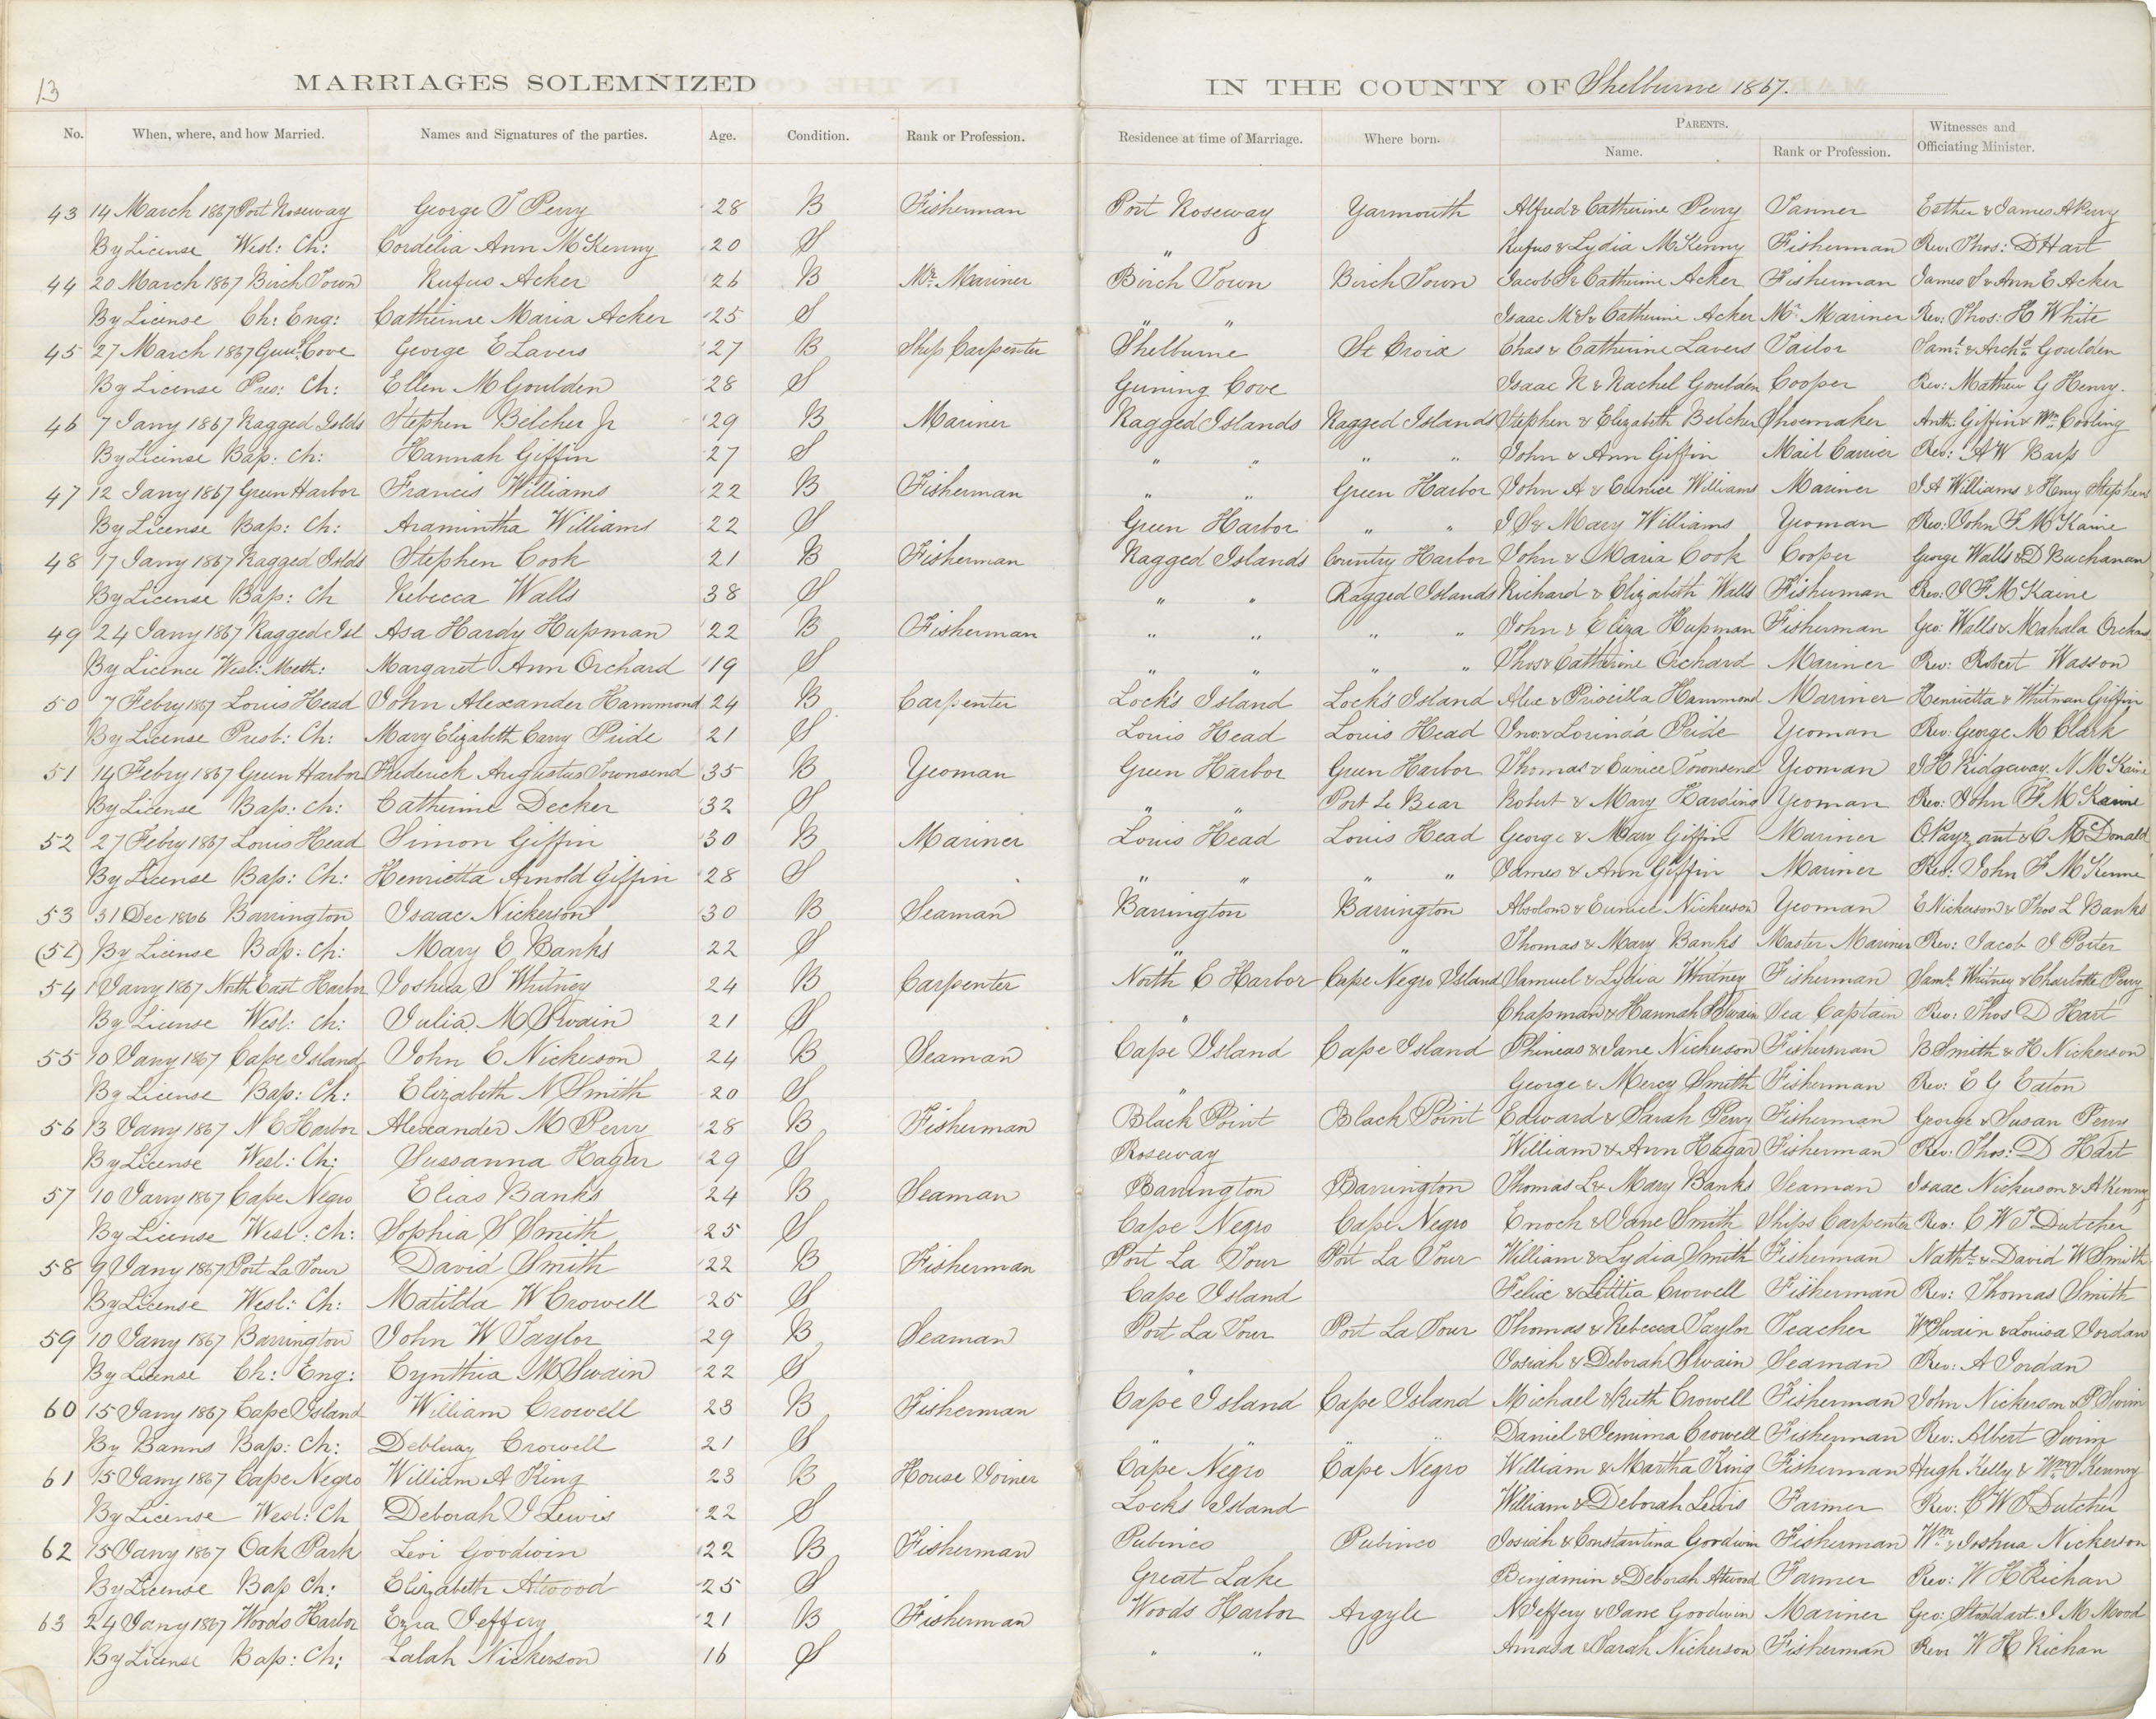 13
MARRIAGES SOLEMNIZED IN THE COUNTY OF Shelburne 1867.
No. When, where, and how Married. Names and Signatures of the parties. Age. Condition. Rank or Profession. Residence at time of Marriage. Where born. PARENTS. Witnesses and Officiating Minister.
Name. Rank or Profession.
43 14 March 1867 Port Roseway George T Perry 28 B Fisherman Port Roseway Yarmouth Alfred & Catherine Perry Tanner Esther & James A Perry
By License Wesl: Ch: Cordelia Ann McKenny 20 S " Rufus & Lydia McKenny Fisherman Rev: Thos: D Hart
44 20 March 1867 Birch Town Rufus Acker 26 B Mr. Mariner Birch Town Birch Town Jacob S & Catherine Acker Fisherman James S & Ann E Acker
By License Ch: Eng: Catherine Maria Acker 25 S " " Isaac McS & Catherine Acker Mr. Mariner Rev: Thos: H White
45 27 March 1867 Gun: Cove George E Lavers 27 B Ship Carpenter Shelburne St Croix Chas & Catherine Lavers Tailor Saml. & Archd. Goulden
By License Pres: Ch: Ellen M Goulden 28 S Guning Cove Isaac R & Rachel Goulden Cooper Rev: Mathew G Henry.
46 7 Jany 1867 Ragged Islds Stephen Belcher Jr 29 B Mariner Ragged Islands Ragged Islands Stephen & Elizabeth Belcher Shoemaker Anth: Giffin & Wm.
By License Bap: Ch: Hannah Giffin 27 S " " " " John & Ann Giffin Mail Carrier Rev: A W Barss
47 12 Jany 1867 Green Harbor Francis Williams 22 B Fisherman " " Green Harbor John A & Eunice Williams Mariner J A Williams & Henry Stephens
By License Bap: Ch: Aramintha Williams 22 S Green Harbor " " J S & Mary Williams Yeoman Rev: John F McKaine
48 17 Jany 1867 Ragged Islds Stephen Cook 21 B Fisherman Ragged Islands Country Harbor John & Maria Cook Cooper George Walls & D Buchanan
By License Bap: Ch Rebecca Walls 38 S " " Ragged Islands Richard & Elizabeth Walls Fisherman Rev: J F McKaine
49 24 Jany 1867 Ragged Isl Asa Hardy Hupman 22 B Fisherman " " " " John & Eliza Hupman Fisherman Geo: Walls & Mahala Orchard
By Licence Wesl: Meth: Margaret Ann Orchard 19 S " " " " Thos & Catherine Orchard Mariner Rev: Robert Wasson
50 7 Febry 1867 Louis Head John Alexander Hammond 24 B Carpenter Lock's Island Lock's Island Alex & Priscilla Hammond Mariner Henrietta & Whitman Giffin
By License Presb: Ch: Mary Elizabeth Carry Pride 21 S Louis Head Louis Head Jno: & Lorinda Pride Yeoman Rev: George M Clark
51 14 Febry 1867 Green Harbor Frederick Augustus Townsend 35 B Yeoman Green Harbor Green Harbor Thomas & Eunice Townsend Yeoman J H Ridgeway, N McKaine
By License Bap: Ch: Catherine Decker 32 S " " Port Le Bear Robert & Mary Harding Yeoman Rev: John F McKaine
52 27 Febry 1867 Louis Head Simon Giffin 30 B Mariner Louis Head Louis Head George & Mary Giffin Mariner & C McDonald
By License Bap: Ch: Henrietta Arnold Giffin 28 S " " " " James & Ann Giffin Mariner Rev: John F McKenne
53 31 Dec 1866 Barrington Isaac Nickerson 30 B Seaman Barrington Barrington Absolom & Eunice Nickerson Yeoman E Nickerson & Thos L Banks
By License Bap: Ch: Mary E Banks 22 S " " Thomas & Mary Banks Master Mariner Rev: Jacob I Porter
54 1 Jany 1867 North East Harbor Joshua S Whitney 24 B Carpenter North E Harbor Cape Negro Island Samuel & Lydia Whitney Fisherman Saml. Whitney & Charlotte Perry
By License Wesl: Ch: Julia M Swain 21 S " Chapman & Hannah Swain Sea Captain Rev: Thos D Hart
55 10 Jany 1867 Cape Island John E Nickerson 24 B Seaman Cape Island Cape Island Phineas & Jane Nickerson Fisherman B Smith & H Nickerson
By License Bap: Ch: Elizabeth N Smith 20 S " George & Mercy Smith Fisherman Rev: E G Eaton
56 13 Jany 1867 N E Harbor Alexander M Perry 28 B Fisherman Black Point Black Point Edward & Sarah Perry Fisherman George & Susan Perry
By License Wesl: Ch: Sussanna Hagar 29 S Roseway William & Ann Hagar Fisherman Rev: Thos: D Hart
57 10 Jany 1867 Cape Negro Elias Banks 24 B Seaman Barrington Barrington Thomas L & Mary Banks Seaman Isaac Nickerson & A Kenny
By License Wesl: Ch: Sophia S Smith 25 S Cape Negro Cape Negro Enoch & Jane Smith Ships Carpenter Rev: C W T Dutcher
58 9 Jany 1867 Port La Tour David Smith 22 B Fisherman Port La Tour Port La Tour William & Lydia Smith Fisherman Nathl. & David W Smith
By License Wesl: Ch: Matilda W Crowell 25 S Cape Island Felix & Letitia Crowell Fisherman Rev: Thomas Smith
59 10 Jany 1867 Barrington John W Taylor 29 B Seaman Port La Tour Port La Tour Thomas & Rebecca Taylor Teacher W Swain & Louisa Jordan
By License Ch: Eng: Cynthia M Swain 22 S " Josiah & Deborah Swain Seaman Rev: A Jordan
60 15 Jany 1867 Cape Island William Crowell 23 B Fisherman Cape Island Cape Island Michael & Ruth Crowell Fisherman John Nickerson & P Swim
By Banns Bap: Ch: Crowell 21 S " " " " Daniel & Jemima Crowell Fisherman Rev: Albert Swim
61 15 Jany 1867 Cape Negro William A King 23 B House Joiner Cape Negro Cape Negro William & Martha King Fisherman Hugh Kelly & Wm. S Kenny
By License Wesl: Ch Deborah J Lewis 22 S Locks Island William & Deborah Lewis Farmer Rev: C W T Dutcher
62 15 Jany 1867 Oak Park Levi Goodwin 22 B Fisherman Pubinco Pubinco Josiah & Constantina Goodwin Fisherman Wm. & Joshua Nickerson
By License Bap Ch: Elizabeth Atwood 25 S Great Lake Benjamin & Deborah Atwood Farmer Rev: W H Richan
63 24 Jany 1867 Woods Harbor Ezra Jeffery 21 B Fisherman Woods Harbor Argyle N Jeffery & Jane Goodwin Mariner Geo: Stoddart. J M Mood
By License Bap: Ch: Lalah Nickerson 16 S " " Amasa & Sarah Nickerson Fisherman Rev: W H Richan